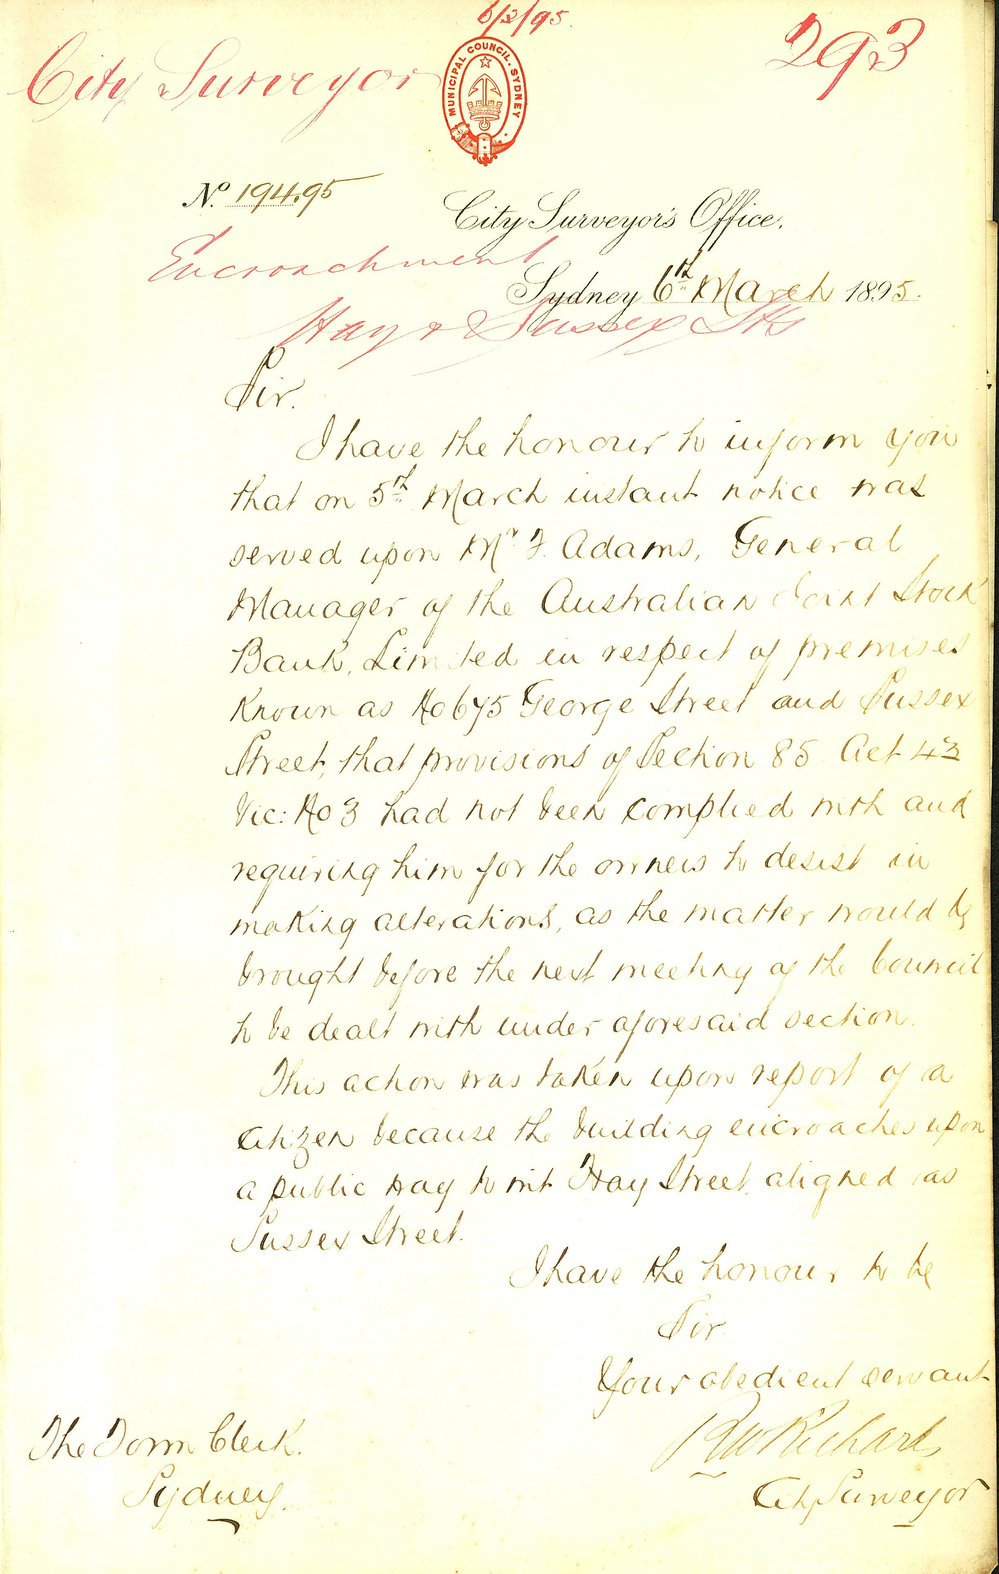 6/3/95.
City Surveyor
293
MUNICIPAL COUNCIL. SYDNEY
No. 194.95
City Surveyor's Office.
Encroachment
Sydney 6th March 1895.
Hay & Sussex Sts
Sir.
I have the honour to inform you
that on 5th March instant notice was
served upon Mr F. Adams, General
Manager of the Australian Joint Stock
Bank, Limited in respect of premises
known as No 675 George Street and Sussex
Street, that provisions of Section 85 Act 43
Vic: No 3 had not been complied with and
requiring him for the owners to desist in
making alterations, as the matter would be
brought before the next meeting of the Council
to be dealt with under aforesaid section.
This action was taken upon report of a
Citizen because the building encroaches upon
a public way to wit Hay Street, aligned as
Sussex Street.
I have the honour to be
Sir
Your obedient servant
RW Richards
City Surveyor
The Town Clerk.
Sydney.